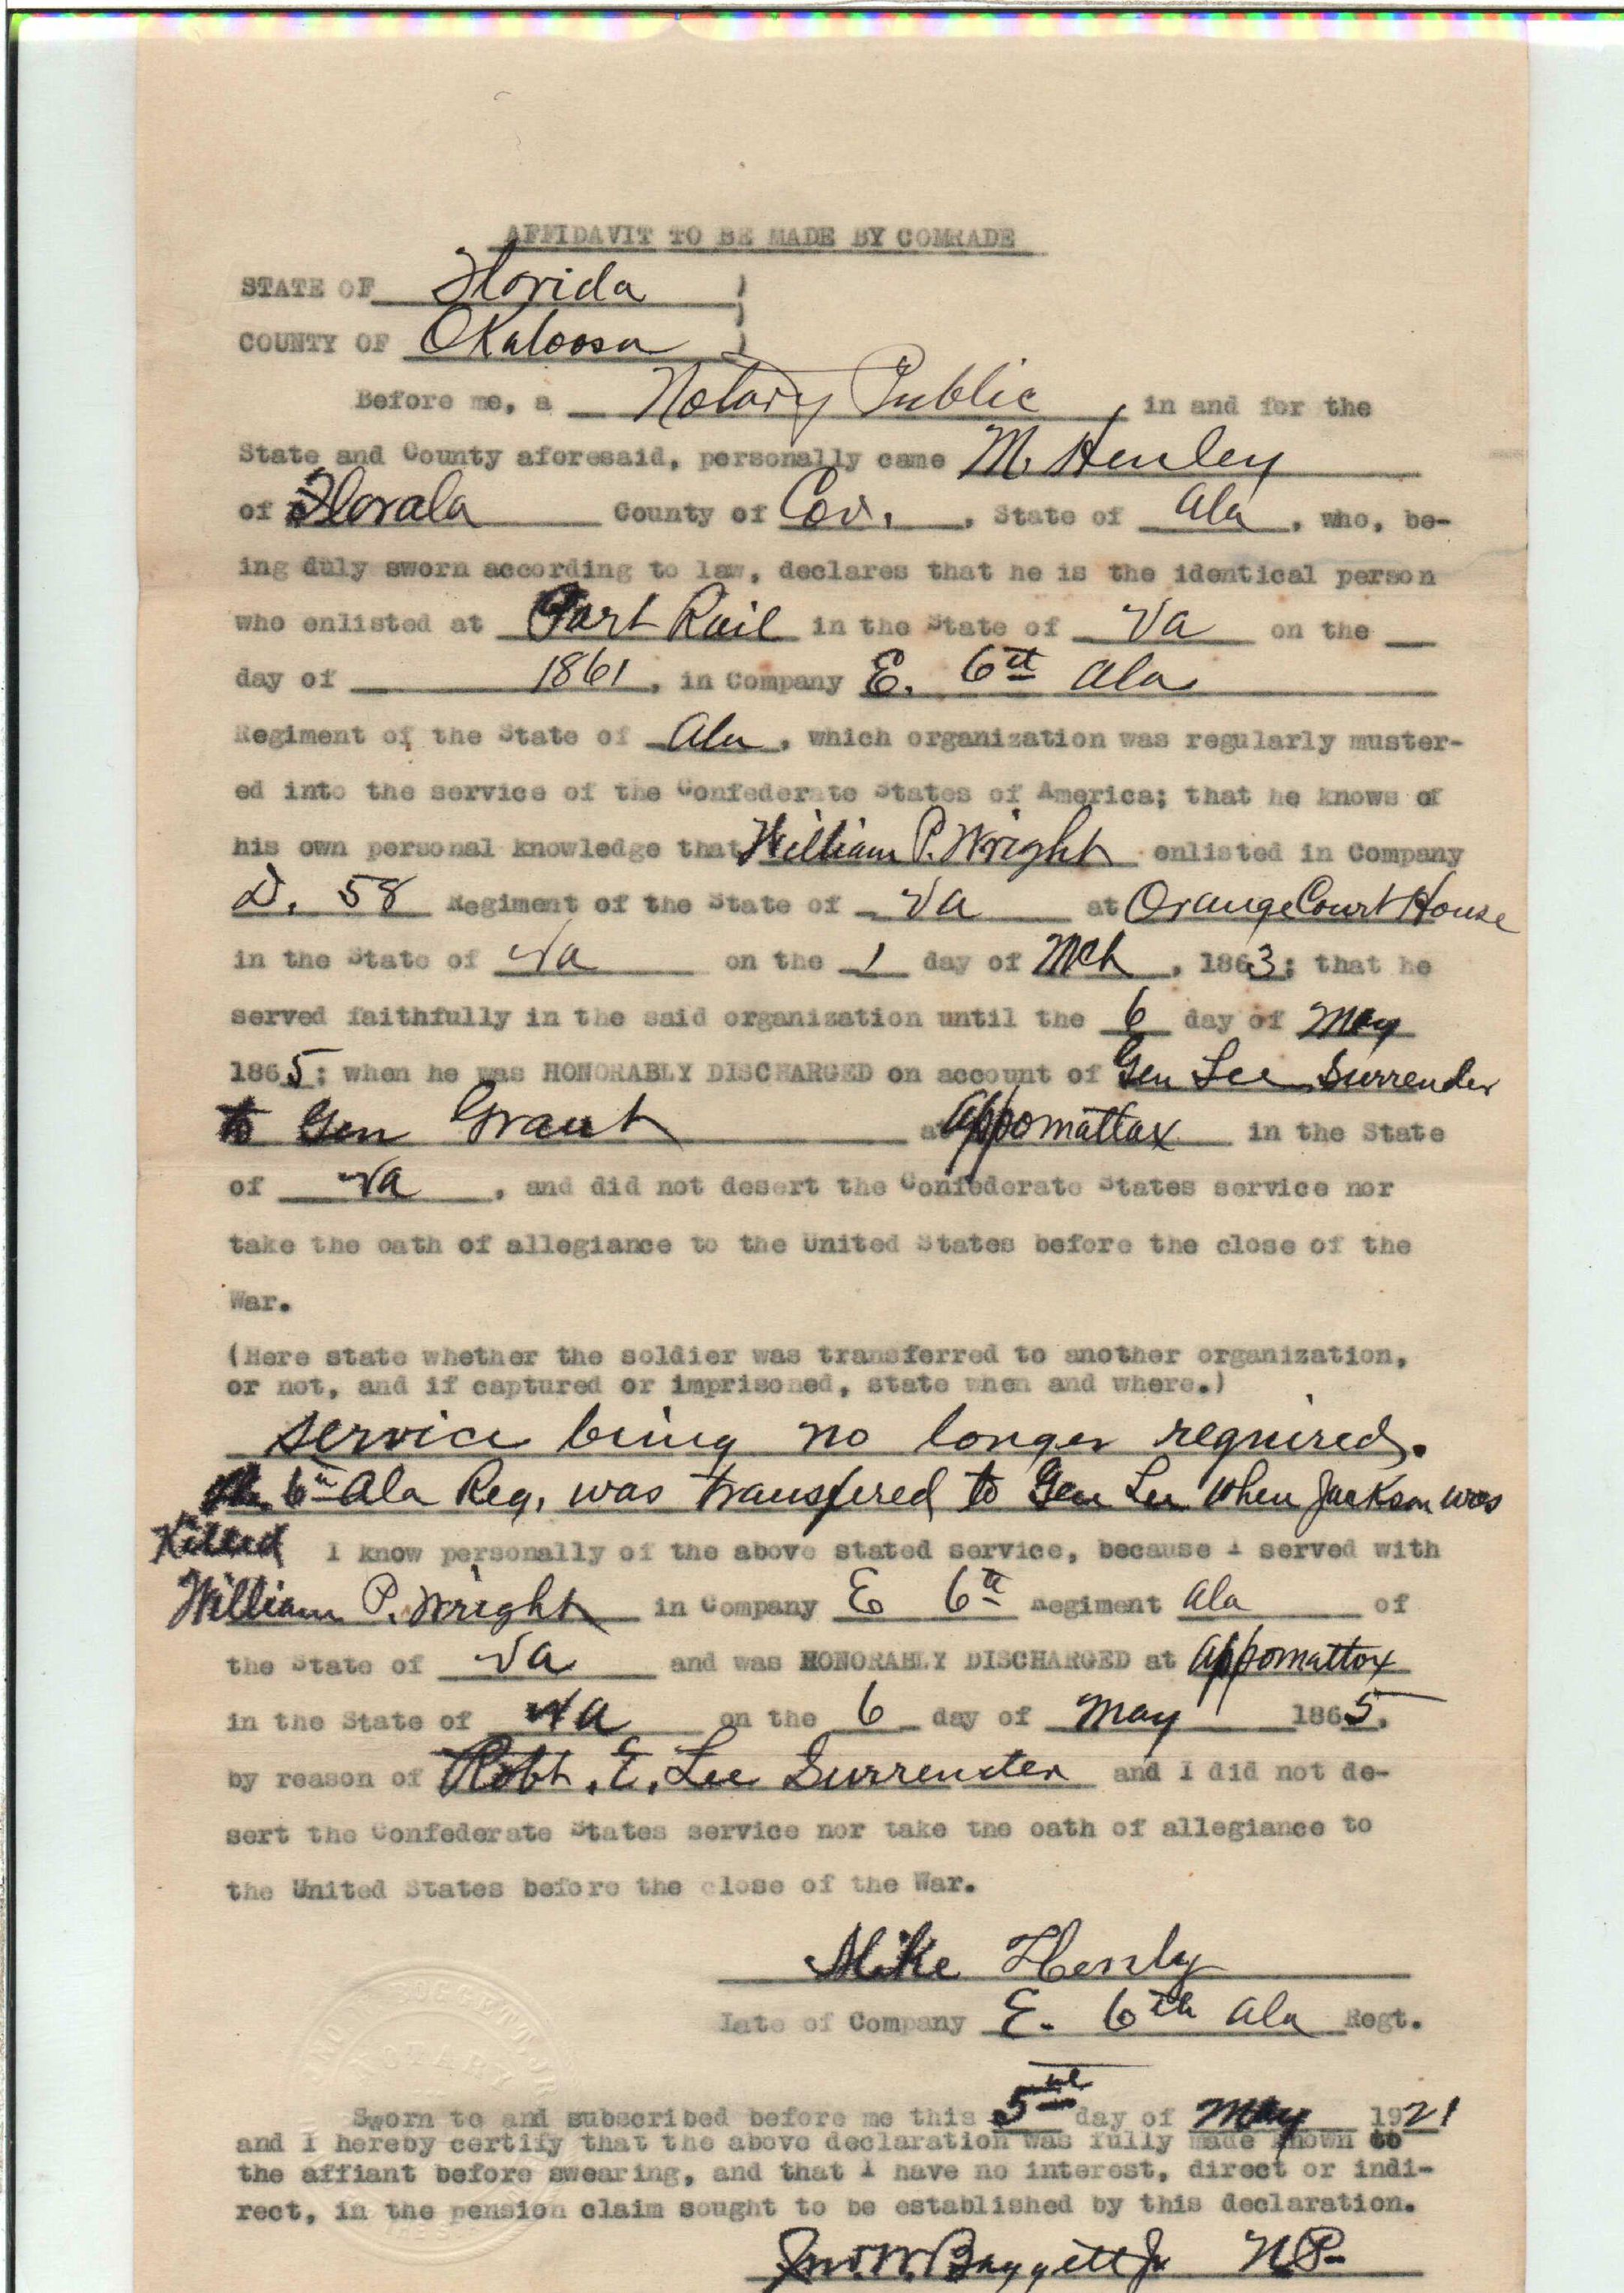 AFFIDAVIT TO BE MADE BY COMRADE
STATE OF Florida )
COUNTY OF Okaloosa )
Before me, a Notary Public, in and for the
State and County aforesaid, personally came M. Henley
of Florala County of Cov., State of Ala, who, be-
ing duly sworn according to law, declares that he is the identical person
who enlisted at in the State of Va on the
day of 1861, in Company E. 6th Ala
Regiment of the State of Ala, which organization was regularly muster-
ed into the service of the Confederate States of America; that he knows of
his own personal knowledge that William P. Wright enlisted in Company
D. 58 Regiment of the State of Va at Orange Court House
in the State of Va on the 1 day of Mch, 1863; that he
served faithfully in the said organization until the 6 day of May
1865; when he was HONORABLY DISCHARGED on account of Gen Lee Surrender
to Gen Grant at Appomattax in the State
of Va, and did not desert the Confederate States service nor
take the oath of allegiance to the United States before the close of the
War.
(Here state whether the soldier was transferred to another organization,
or not, and if captured or imprisoned, state when and where.)
service being no longer required.
The 6th Ala Reg. was transfered to Gen Lee when Jackson was
Killed I know personally of the above stated service, because I served with
William P. Wright in Company E 6th Regiment Ala of
the State of Va and was HONORABLY DISCHARGED at Appomattox
in the State of Va on the 6 day of May 1865.
by reason of Robt. E. Lee Surrender and I did not de-
sert the Confederate States service nor take the oath of allegiance to
the United States before the close of the War.
Mike Henly
Late of Company E. 6th Ala Regt.
Sworn to and subscribed before me this 5th day of May 1921
and I hereby certify that the above declaration was fully made known to
the affiant before swearing, and that I have no interest, direct or indi-
rect, in the pension claim sought to be established by this declaration.
Jno. W. Baggett Jr N.P.
NOTARY